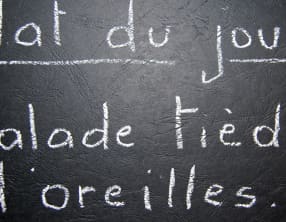 lat du jou
alade tièd
d'oreilles.